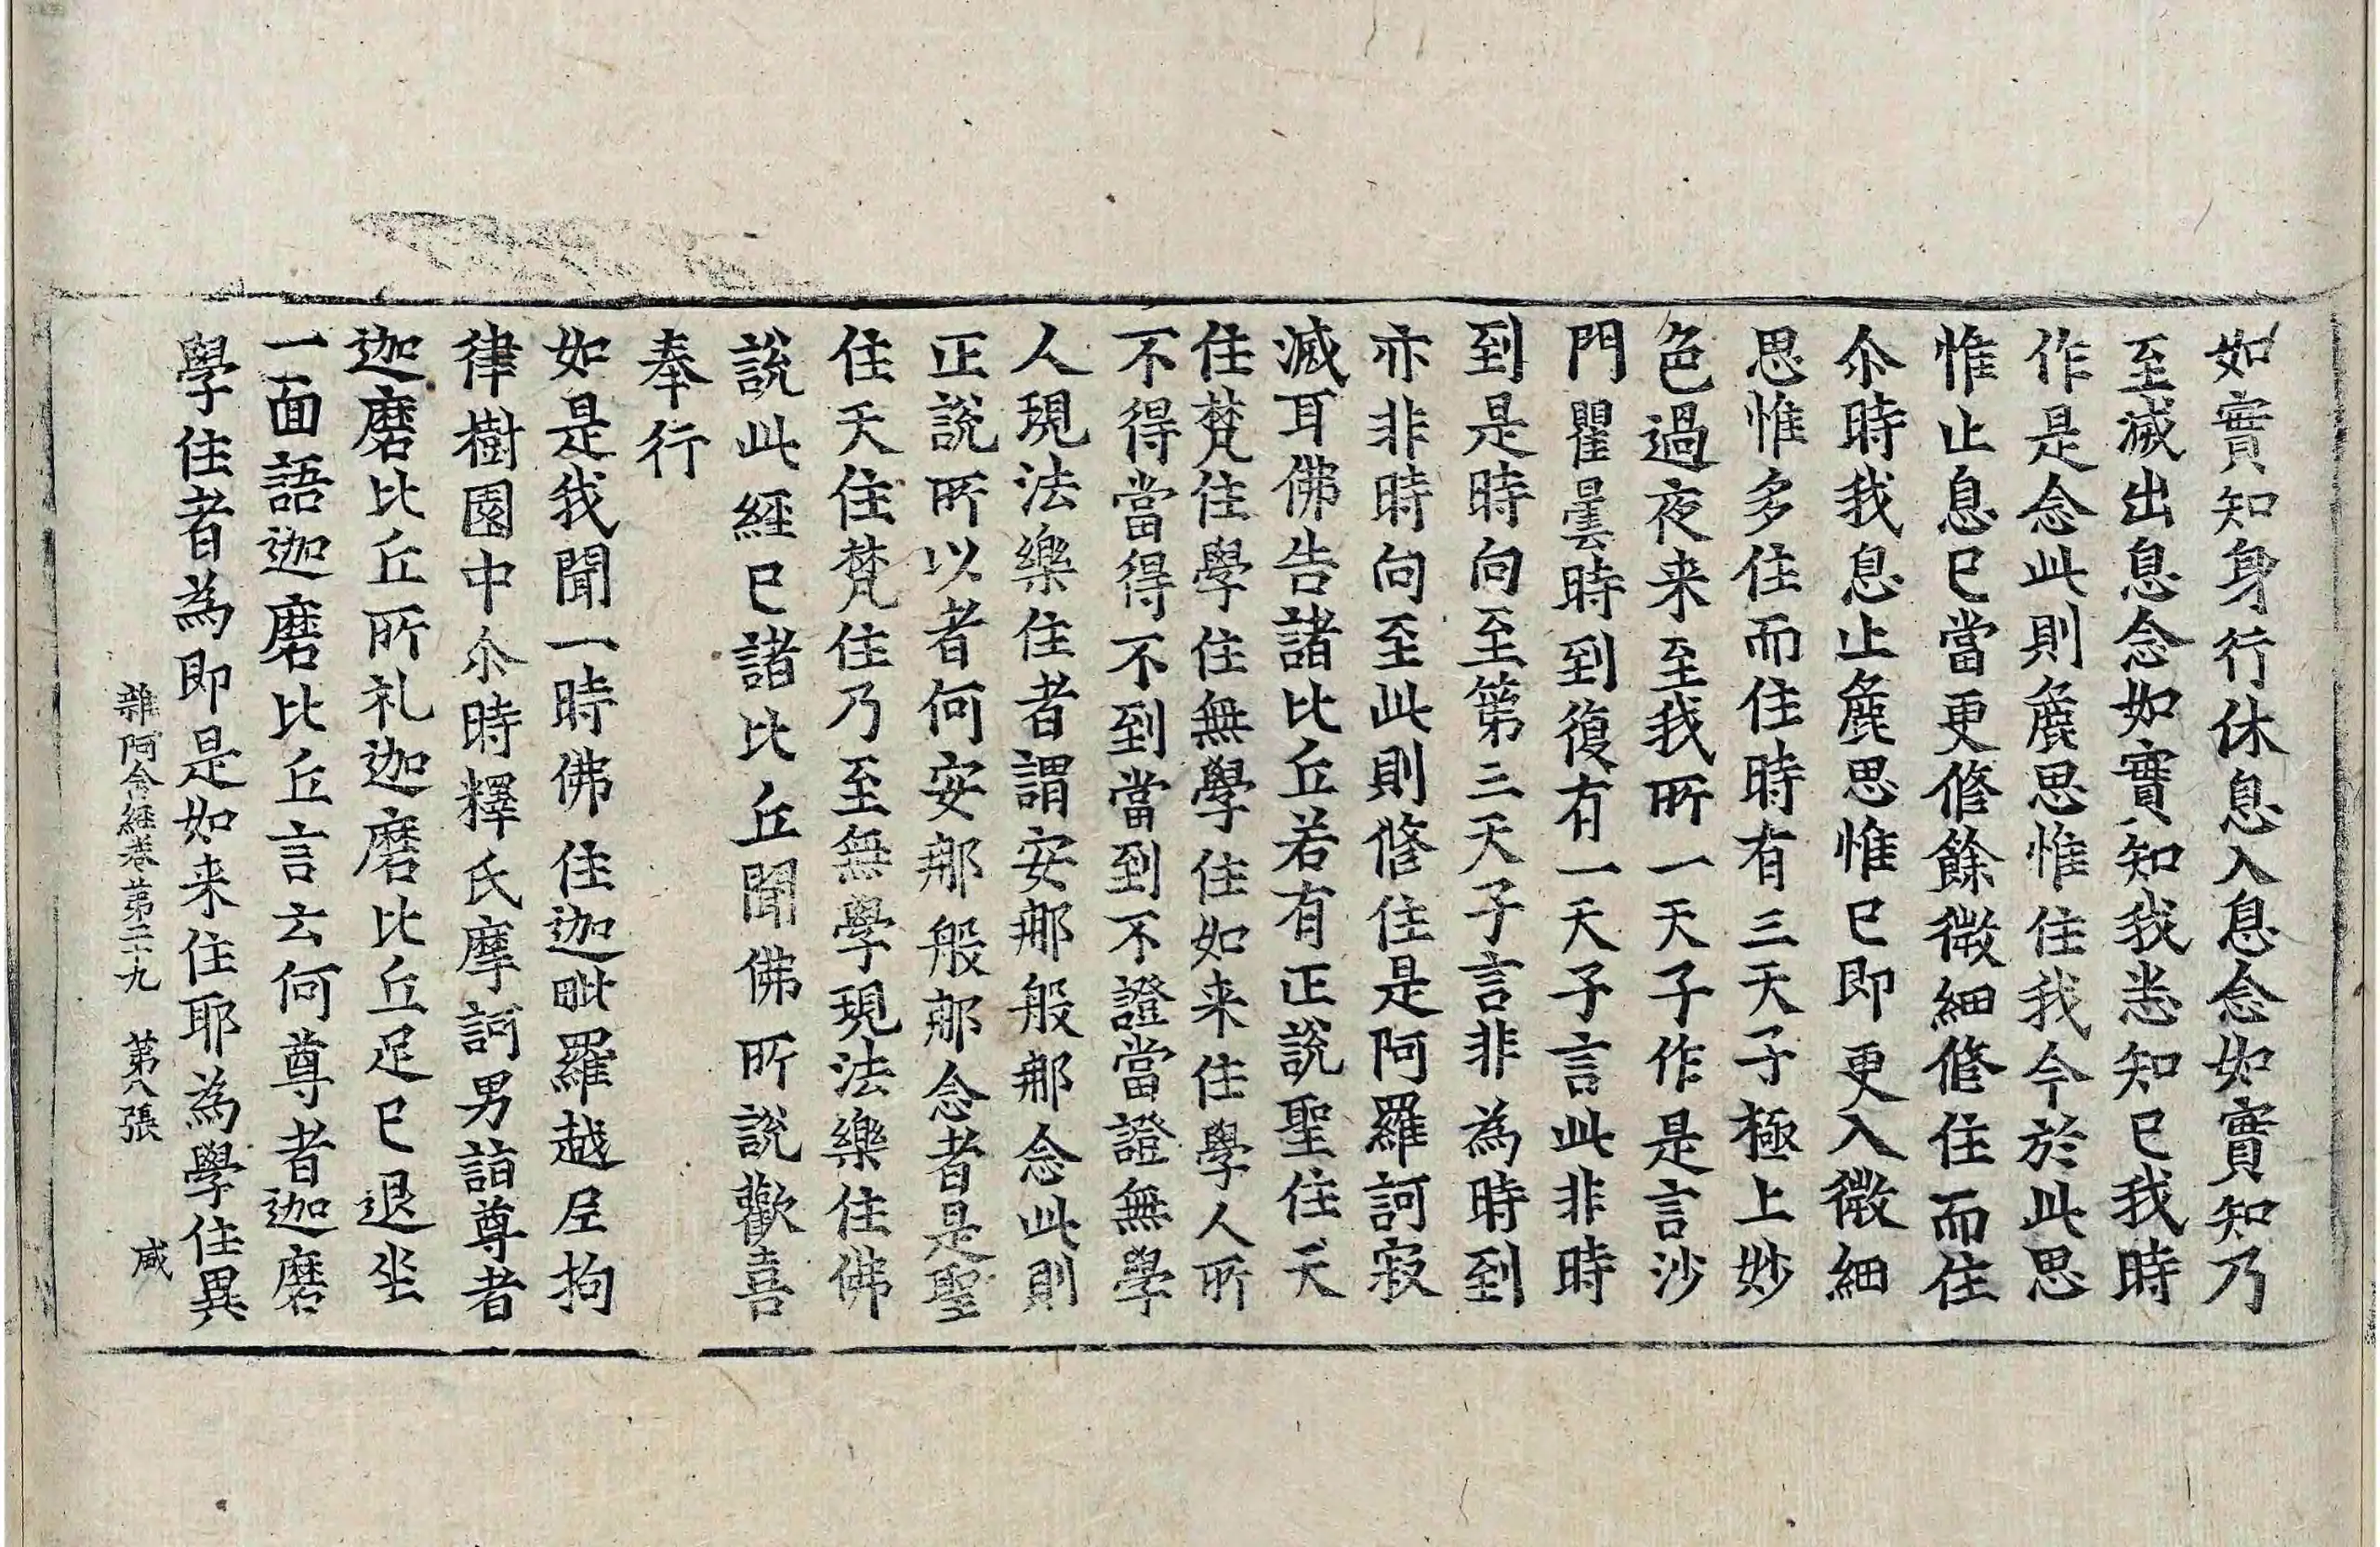 如實知身行休息入息念如實知乃
至滅出息念如實知我悉知已我時
作是念此則麁思惟住我今於此思
惟止息已當更修餘微細修住而住
尒時我息止麁思惟已即更入微細
思惟多住而住時有三天子極上妙
色過夜来至我所一天子作是言沙
門瞿曇時到復有一天子言此非時
到是時向至第三天子言非為時到
亦非時向至此則修住是阿羅訶寂
滅耳佛告諸比丘若有正說聖住天
住梵住學住無學住如来住學人所
不得當得不到當到不證當證無學
人現法樂住者謂安那般那念此則
正說所以者何安那般那念者是聖
住天住梵住乃至無學現法樂住佛
說此經已諸比丘聞佛所說歡喜
奉行
如是我聞一時佛住迦毗羅越尼拘
律樹園中尒時釋氏摩訶男詣尊者
迦磨比丘所礼迦磨比丘足已退坐
一面語迦磨比丘言云何尊者迦磨
學住者為即是如来住耶為學住異
雜阿含經卷第二十九 第八張 咸